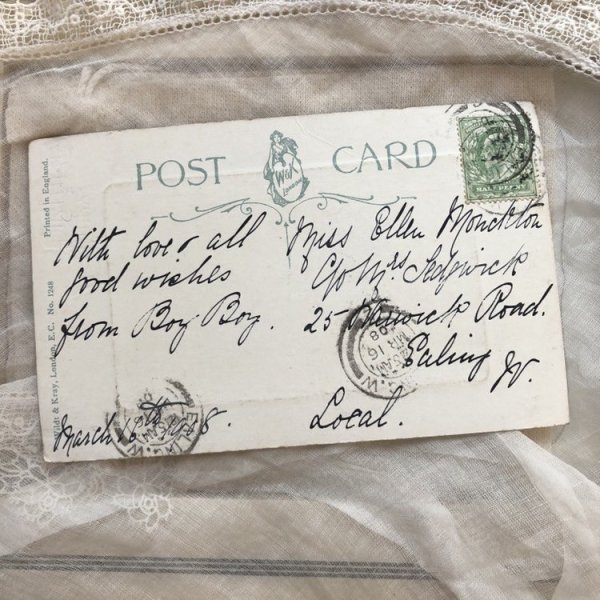 POST CARD
W&K
London
HALFPENNY
With love & all
good wishes
from Boy Boy.
March 16th 1908.
Miss Ellen Monckton
C/o Mrs Sedgwick
25 Road.
Ealing
W.
Local.
MR 16
08
Wildt & Kray, London, E.C. No. 1248
Printed in England.